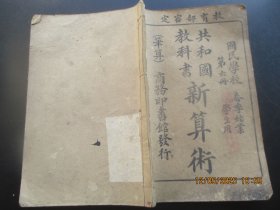 教育部審定
國民學校
春季始業
學生用
第六冊
共和國
教科書
新算術
(筆算)
商務印書館發行